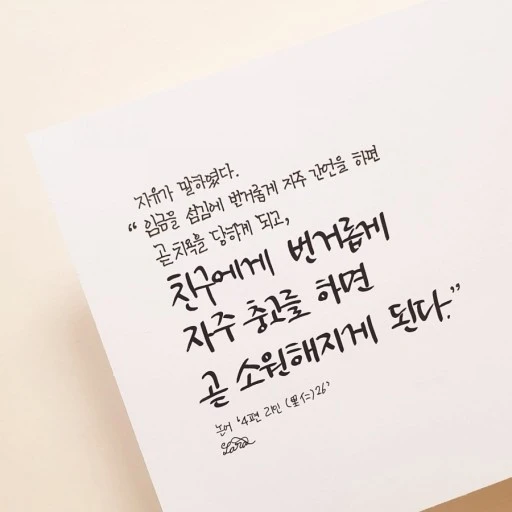 자유가 말하였다.
“임금을 섬김에 번거롭게 자주 간언을 하면
곧 치욕을 당하게 되고,
친구에게 번거롭게
자주 충고를 하면
곧 소원해지게 된다.”
논어 '4편 리인 (里仁) 26'